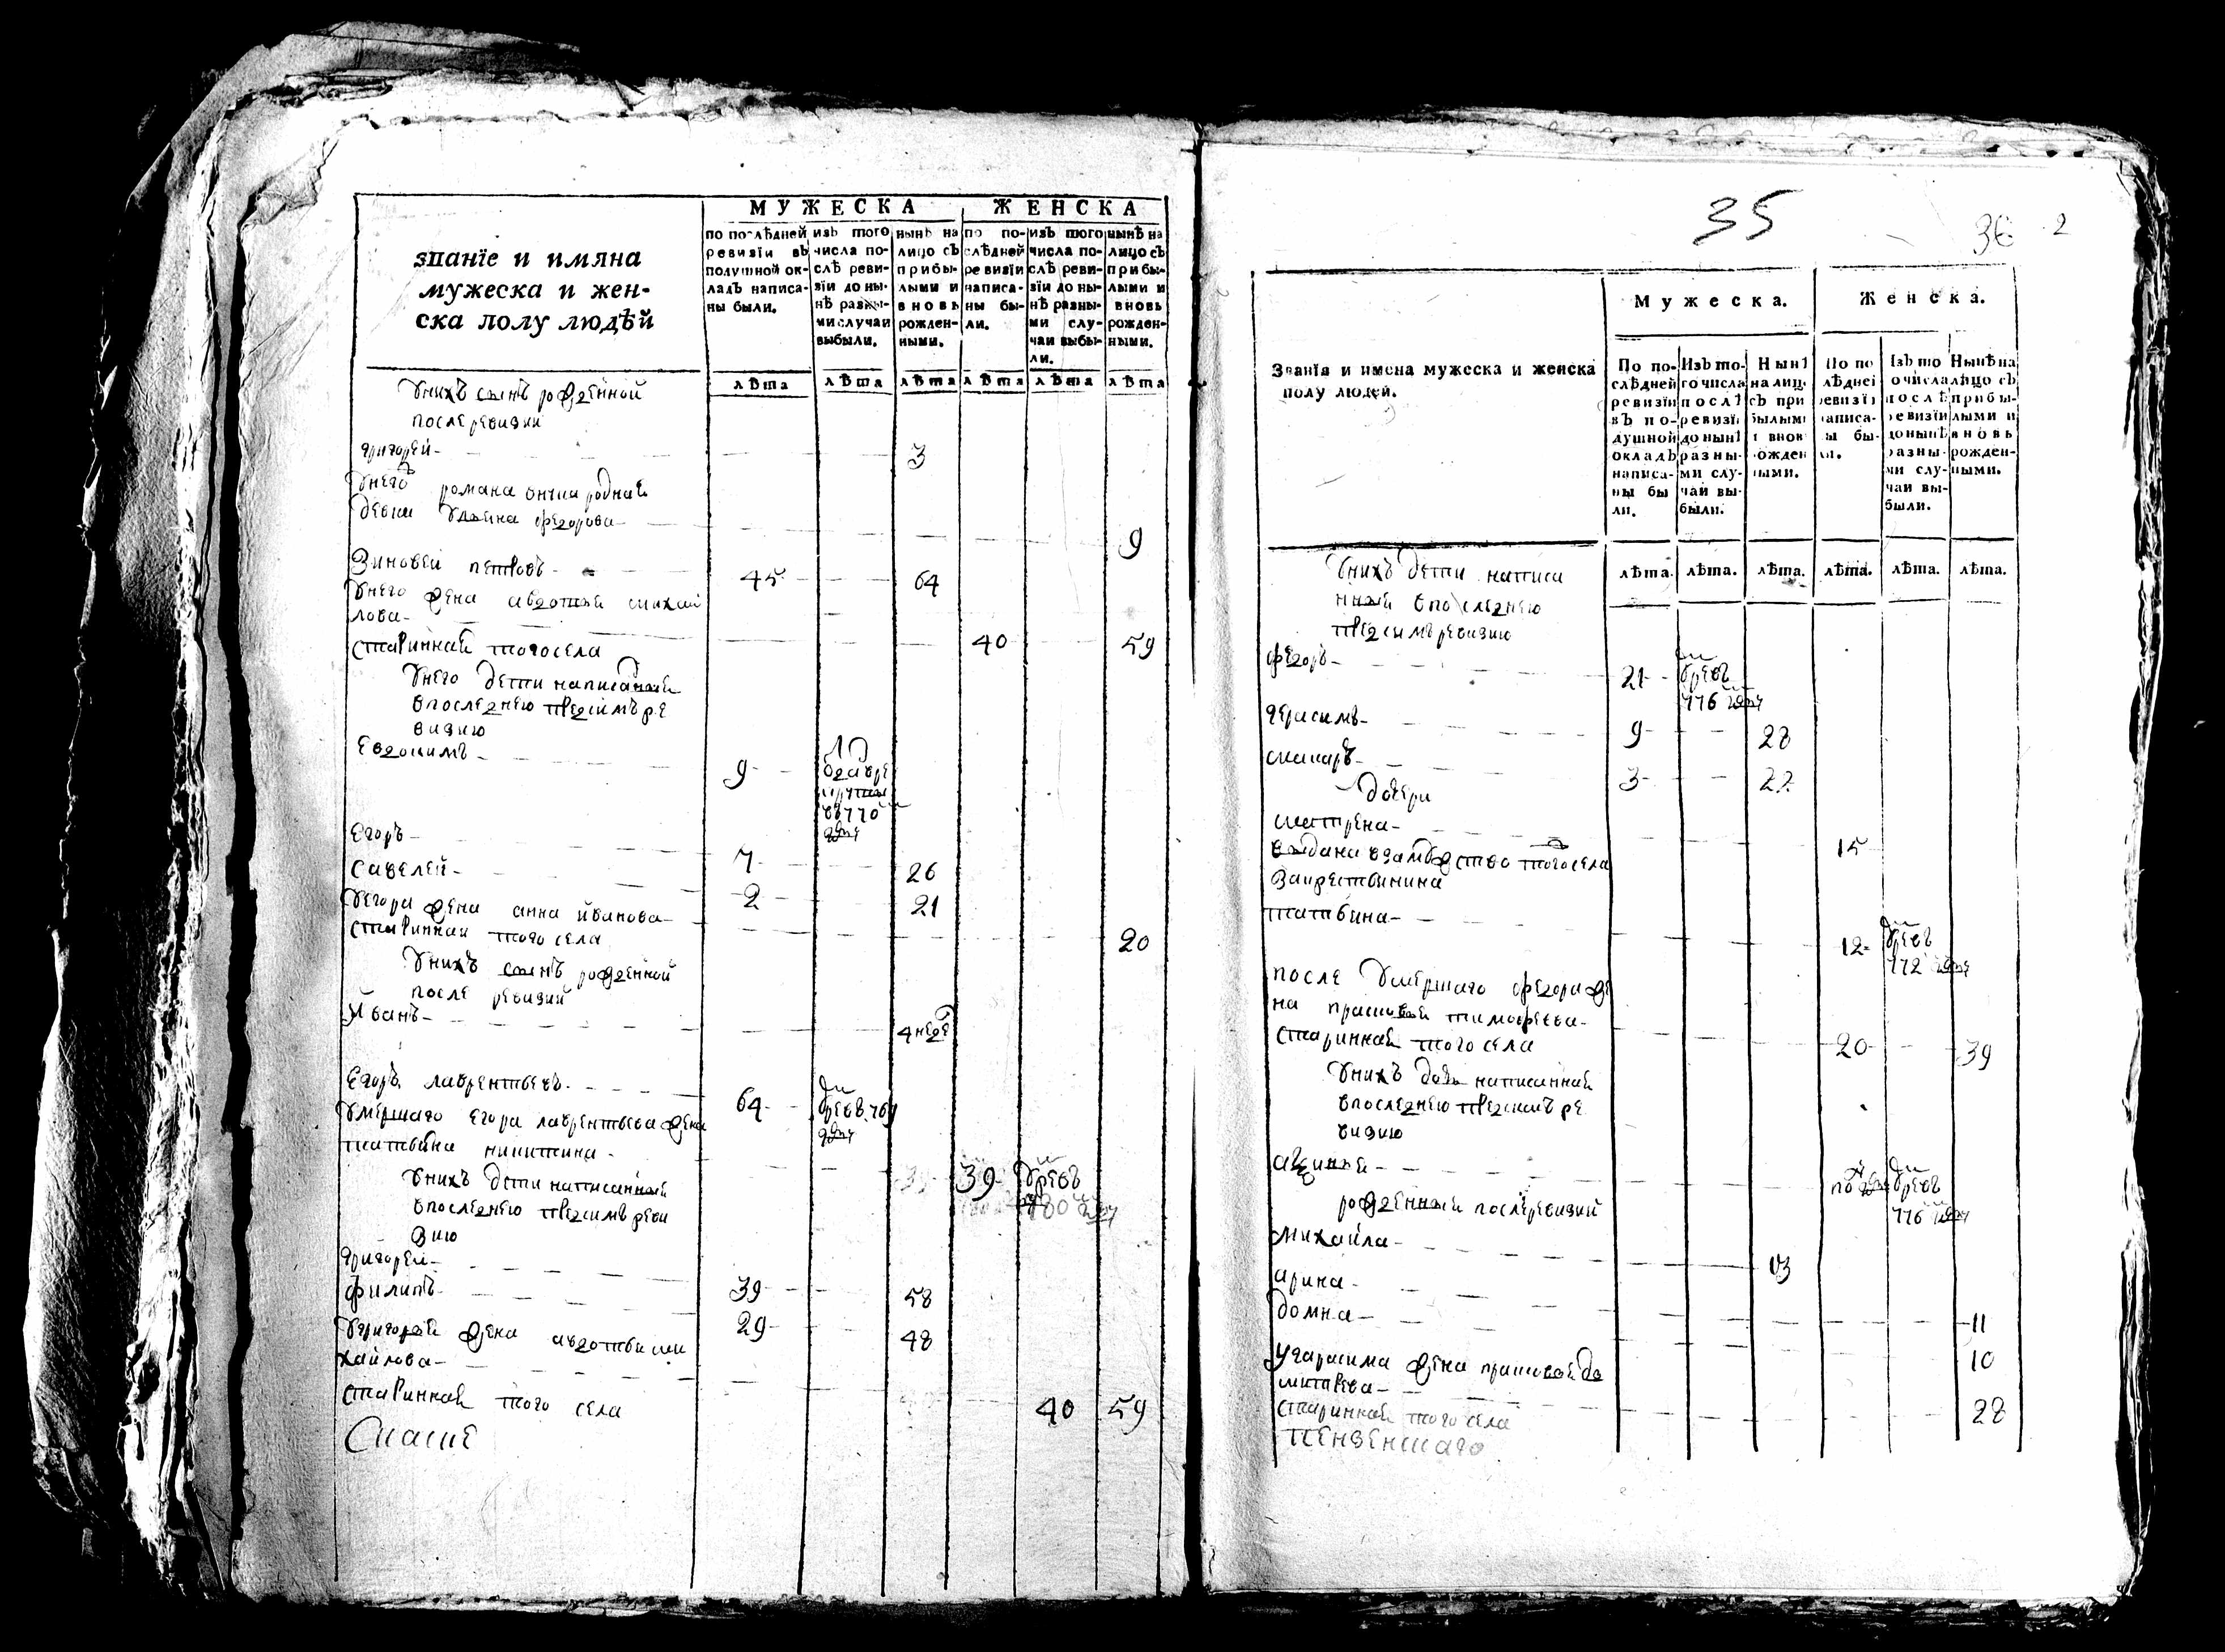 званїе и имяна
мужеска и жен-
ска полу людѣй
МУЖЕСКА
ЖЕНСКА
по послѣдней
ревизїи въ
подушной ок-
ладъ написа-
ны были.
изъ того
числа по-
слѣ реви-
зїи до ны-
нѣ разны-
ми случаи
выбыли.
нынѣ на
лицо съ
прибы-
лыми и
вновь
рожден-
ными.
по по-
слѣдней
ревизїи
написа-
ны бы-
ли.
изъ того
числа по-
слѣ реви-
зїи до ны-
нѣ разны-
ми слу-
чаи выбы-
ли.
нынѣ на
лицо съ
прибы-
лыми и
вновь
рожден-
ными.
лѣта лѣта лѣта лѣта лѣта лѣта
Униxъ сынъ рожденной
после ревизии
григорей 3
Унего романа
девки федорова
9
Зиновей петровъ 45 64
Унего жена авдотья михай
лова
старинная того села 40 59
Унего дети написаные
впоследнею пред симъ ре
визию
Евдокимъ 9
Егоръ 7 26
Савелей 2 21
Уегора жена анна иванова
старинная того села 20
Унихъ сынъ рожденной
после ревизии
Иванъ 4 неде
Егоръ лаврентьевъ 64
Умершаго егора лаврентьева жена
татьяна никитина 39
Унихъ дети написанныя
впоследнею пред симъ реви
зию
григорей 39 58
филипъ 29 48
Угригорья жена авдотья ми
хайлова
старинная того села 40 59
35
36
2
Званїя и имена мужеска и женска
полу людей.
Мужеска.
Женска.
По по-
слѣдней
ревизїи
въ по-
душной
окладъ
написа-
ны бы
ли.
Изъ то-
го числа
послѣ
ревизїи
до нынѣ
разны-
ми слу-
чаи вы-
были.
Нынѣ
на лиц
съ при
былыми
и внов
рожден
ными.
По по
слѣдней
ревизїи
написа-
ны бы-
ли.
Изъ то
го числа
послѣ
ревизїи
до нынѣ
разны-
ми слу-
чаи вы-
были.
Нынѣ на
лицо съ
прибы-
лыми и
вновь
рожден-
ными.
лѣта. лѣта. лѣта. лѣта. лѣта. лѣта.
Унихъ дети написа
нныя впоследнею
пред симъ ревизию
федоръ 21 776
герасимъ 9 28
макаръ 3 22
дочери
матрена 15
выдана взамужство того села
закрестьянина
татьяна 12 772
после умершаго федора же
на прасковья тимофеева
старинная того села 20 39
Унихъ дочь написанная
впоследнею пред симъ ре
визию
776
рожденныя после ревизии
михайла 13
арина 11
домна 10
Угарасима жена прасковья дм
итриева
старинная того села 28
пензенскаго